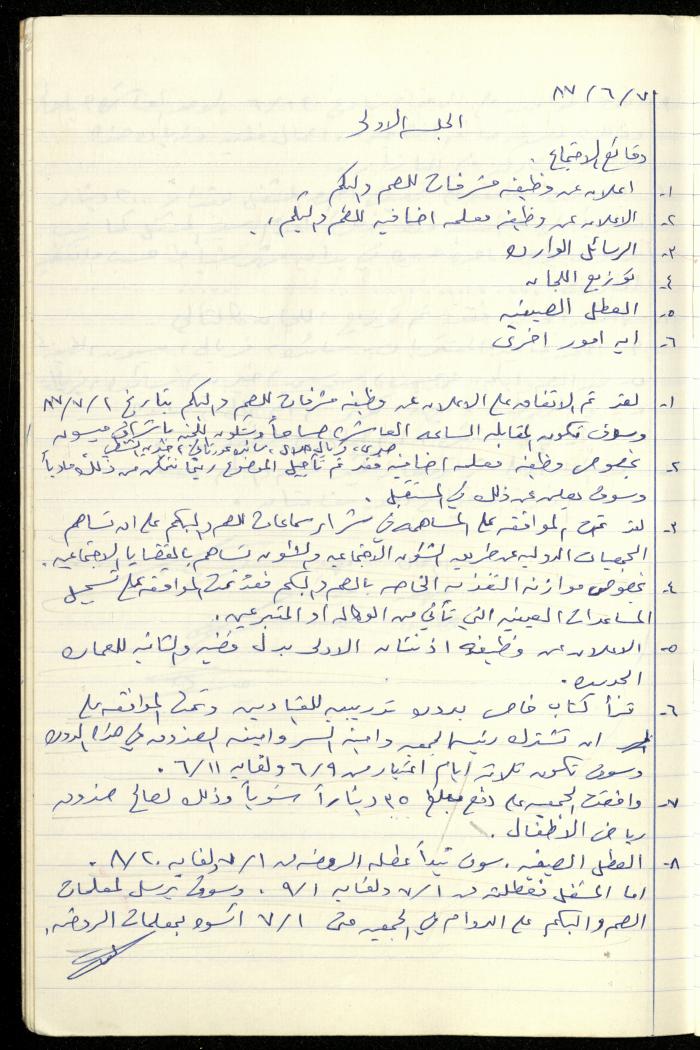 ٨٧/٦/٧
الجلسه الاولى
وقائع الاجتماع .
١- اعلان عن وظيفه مشرفات للصم والبكم
٢- الاعلان عن وظيفه معلمه اضافيه للصم والبكم .
٣- الرسائل الوارده
٤- توزيع اللجان
٥- العطل الصيفيه
٦- ايه امور اخرى
١- لقد تم الاتفاق على الاعلان عن وظيفه مشرفات للصم والبكم بتاريخ ٨٧/٧/١
وسوف تكون المقابله الساعه العاشره صباحاً وستكون اللجنه باشراف ميسون
٢- بخصوص وظيفه معلمه اضافيه فقد تم تأجيل الموضوع ريثما نتمكن من ذلك مادياً
وسوف يعلن عن ذلك في المستقبل .
٣- لقد تمت الموافقه على المساهمه في شراء سماعات للصم والبكم على ان تساهم
الجمعيات الدوليه عن طريق الشؤون الاجتماعيه والشؤون تساهم بالقضايا الاجتماعيه .
٤- بخصوص موازنة التغذيه الخاصه بالصم والبكم فقد تمت الموافقه على تسجيل
المساعدات العينيه التي تأتي من الوكاله او المتبرعين .
٥- الاعلان عن وظيفه اذنتان الاولى بدل فضيه والثانيه للعماره
الجديده .
٦- قرأ كتاب خاص بدوره تدريبيه للقياديين وتمت الموافقه على
ان تشترك رئيسة الجمعيه وامينة السر وامينه الصندوق في هذه الدوره
وسوف تكون ثلاثة ايام اعتبار من ٦/٩ ولغايه ٦/١١ .
٧- وافقت الجمعيه على دفع مبلغ ٣٥ ديناراً سنوياً وذلك لصالح صندوق
رياض الاطفال .
٨- العطل الصيفيه . سوف تبدأ عطله الروضه من ٧/١ ولغايه ٨/٢٠ .
اما المشغل فعطلته من ٧/١ ولغايه ٩/١ . وسوف يرسل لمعلمات
الصم والبكم على الدوام في الجمعيه حتى ٧/١ اسوه بمعلمات الروضه .